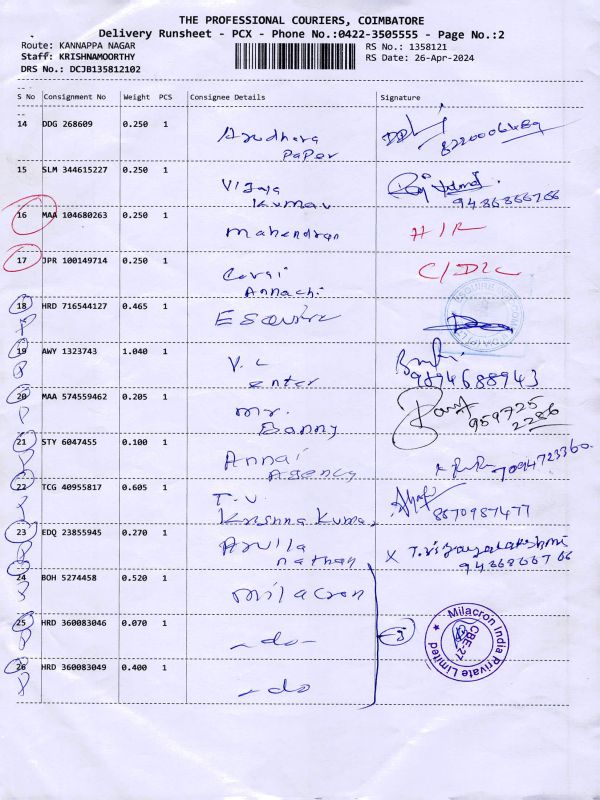 THE PROFESSIONAL COURIERS, COIMBATORE
Delivery Runsheet - PCX - Phone No.:0422-3505555 - Page No.:2
Route: KANNAPPA NAGAR
RS No.: 1358121
Staff: KRISHNAMOORTHY
RS Date: 26-Apr-2024
DRS No.: DCJB135812102
S No Consignment No Weight PCS Consignee Details Signature
14 DDG 268609 0.250 1
Paper
15 SLM 344615227 0.250 1 Vijaya
Kumar
16 MAA 104680263 0.250 1 Mahendran
17 JPR 100149714 0.250 1
Annachi
18 HRD 716544127 0.465 1 Esquire
19 AWY 1323743 1.040 1 V. L 9894688943
enter
20 MAA 574559462 0.205 1 Mr. 959725
Banny 2286
21 STY 6047455 0.100 1 Annai 7094723360
Agency
22 TCG 40955817 0.605 1 T.V.
Krishna Kumar 8870987477
23 EDQ 23855945 0.270 1 Arulla
nathan
24 BOH 5274458 0.520 1 Milacron
25 HRD 360083046 0.070 1 -do-
26 HRD 360083049 0.400 1 -do
Milacron India Private Limited
CBE-21